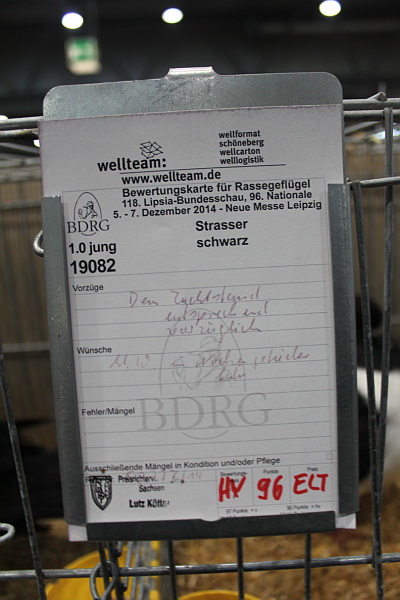 wellteam:
wellformat
schöneberg
wellcarton
welllogistik
www.wellteam.de
Bewertungskarte für Rassegeflügel
118. Lipsia-Bundesschau, 96. Nationale
5. - 7. Dezember 2014 - Neue Messe Leipzig
BDRG
1.0 jung
Strasser
19082
schwarz
Vorzüge
Dem Zuchtstand
entsprechend
vorzüglich
Wünsche
Fehler/Mängel
BDRG
Ausschließende Mängel in Kondition und/oder Pflege
Preisrichterv.
Sachsen
Bewertungs-
Punkte
Preis
HV 96 ELT
Lutz
97 Punkte = v
96 Punkte = hv